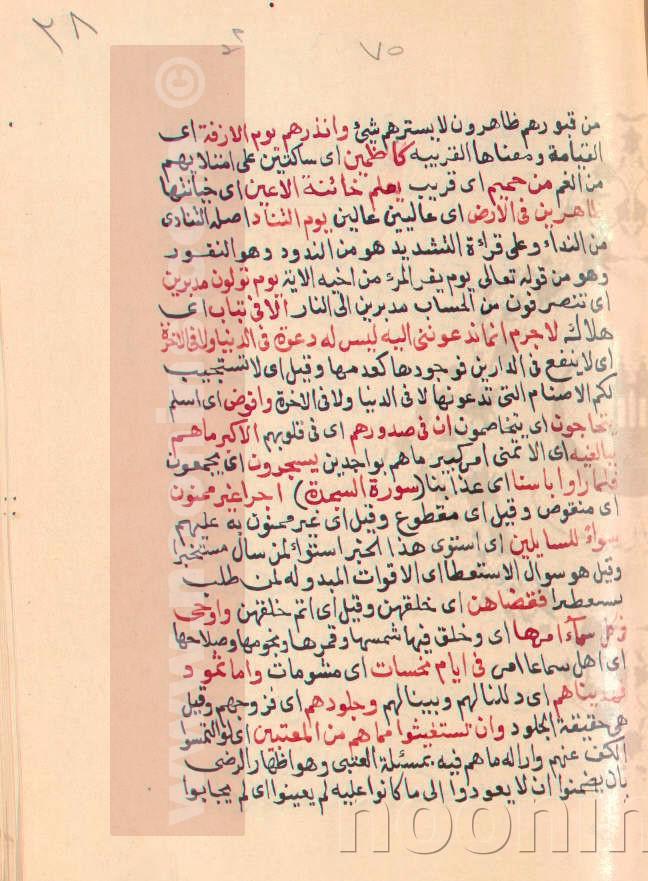 ٢٨
٧٥
من قبورهم ظاهرون لا يسترهم شئ وانذرهم يوم الازفة اى
القيامة ومعناها القريبة كاظمين اى ساكتين على امتلايهم
من الغم من حميم اى قريب يعلم خائنة الاعين اى خيانتها
ظاهرين فى الارض اى عاليين غالبين يوم التناد اصله التنادى
من النداء وعلى قراءة التشديد هو من الندود وهو النفور
وهو من قوله تعالى يوم يفر المرء من اخيه الاية يوم تولون مدبرين
اى تنصرفون من الحساب مدبرين الى النار الا فى تباب اى
هلاك لا جرم انما تدعوننى اليه ليس له دعوة فى الدنيا ولا فى الاخرة
اى لا ينفع فى الدارين فوجودها كعدمها وقيل اى لا تستجيب
لكم الاصنام التى تدعونها لا فى الدنيا ولا فى الاخرة وافوض اى اسلم
يتحاجون اى يتخاصمون ان فى صدورهم اى فى قلوبهم الا كبر ما هم
ببالغيه اى الا تمنى امر كبير ما هم بواجدين يسجرون اى يجمعون
فلما راوا باسنا اى عذابنا (سورة السجدة) اجر غير ممنون
اى منقوص وقيل اى مقطوع وقيل اى غير ممنون به عليهم
سواء للسايلين اى استوى هذا الخبر استواء لمن سال مستخبرا
وقيل هو سوال الاستعطا اى الاقوات المبدوله لمن طلب
فقضاهن اى خلقهن وقيل اى اتم خلقهن واوحى
فى كل سماء امرها اى وخلق فيها شمسها وقمرها ونجومها وصلاحها
اى اهل سما عا امر فى ايام نحسات اى مشومات واما ثمود
فهديناهم اى دللنا لهم وبينا لهم وجلودهم اى فروجهم وقيل
هى حقيقة الجلود وان تستغيثوا مما هم من المعتبين اى لو التمسوا
الكف عنهم وازاله ما هم فيه بمسئلة العتبى وهو اظهار الرضى
بان يضمنوا ان لا يعودوا الى ما كانوا عليه لم يعينوا اى لم يجابوا
©
noonin